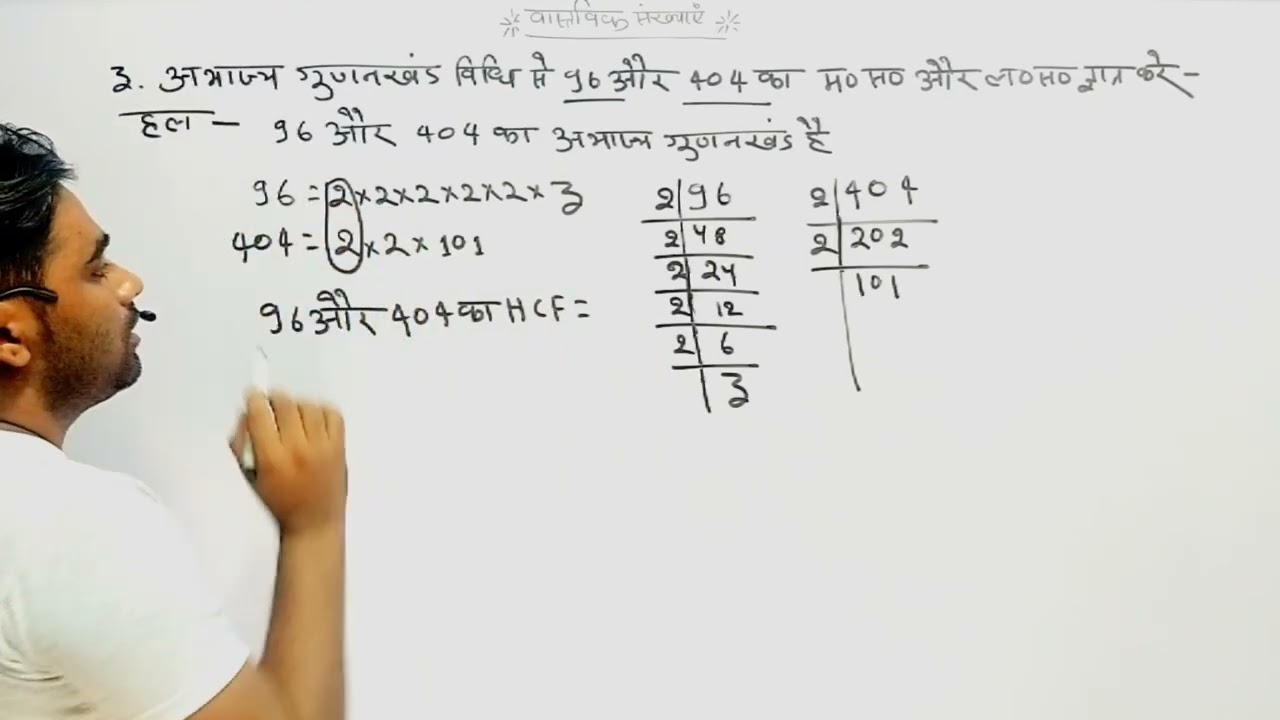 वास्तविक संख्याएं
3. अभाज्य गुणनखंड विधि से 96 और 404 का म० स० और ल० स० ज्ञात करे -
हल - 96 और 404 का अभाज्य गुणनखंड है
96 = 2×2×2×2×2×3
404 = 2×2×101
96 और 404 का HCF =
2 96
2 48
2 24
2 12
2 6
3
2 404
2 202
101